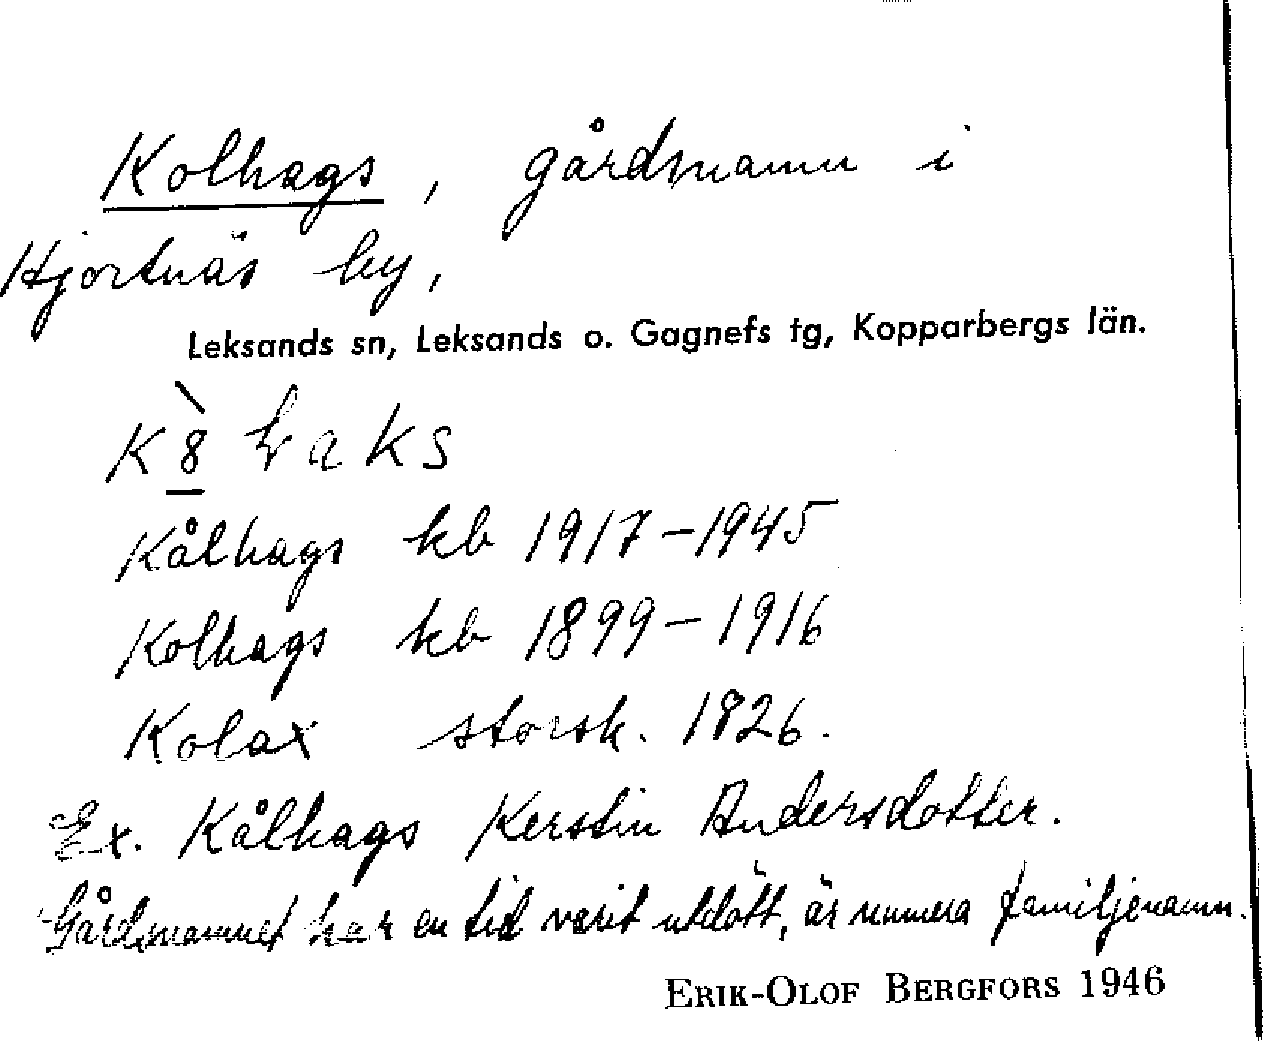 Kolhags, gårdsnamn i
Hjortnäs by,
Leksands sn, Leksands o. Gagnefs tg, Kopparbergs län.
Kålhags kb 1917-1945
Kolhags kb 1899-1916
Kolax storsk. 1826.
Ex. Kålhags Kerstin Andersdotter.
Gårdsnamnet har en tid varit utdött, är numera familjenamn.
ERIK-OLOF BERGFORS 1946